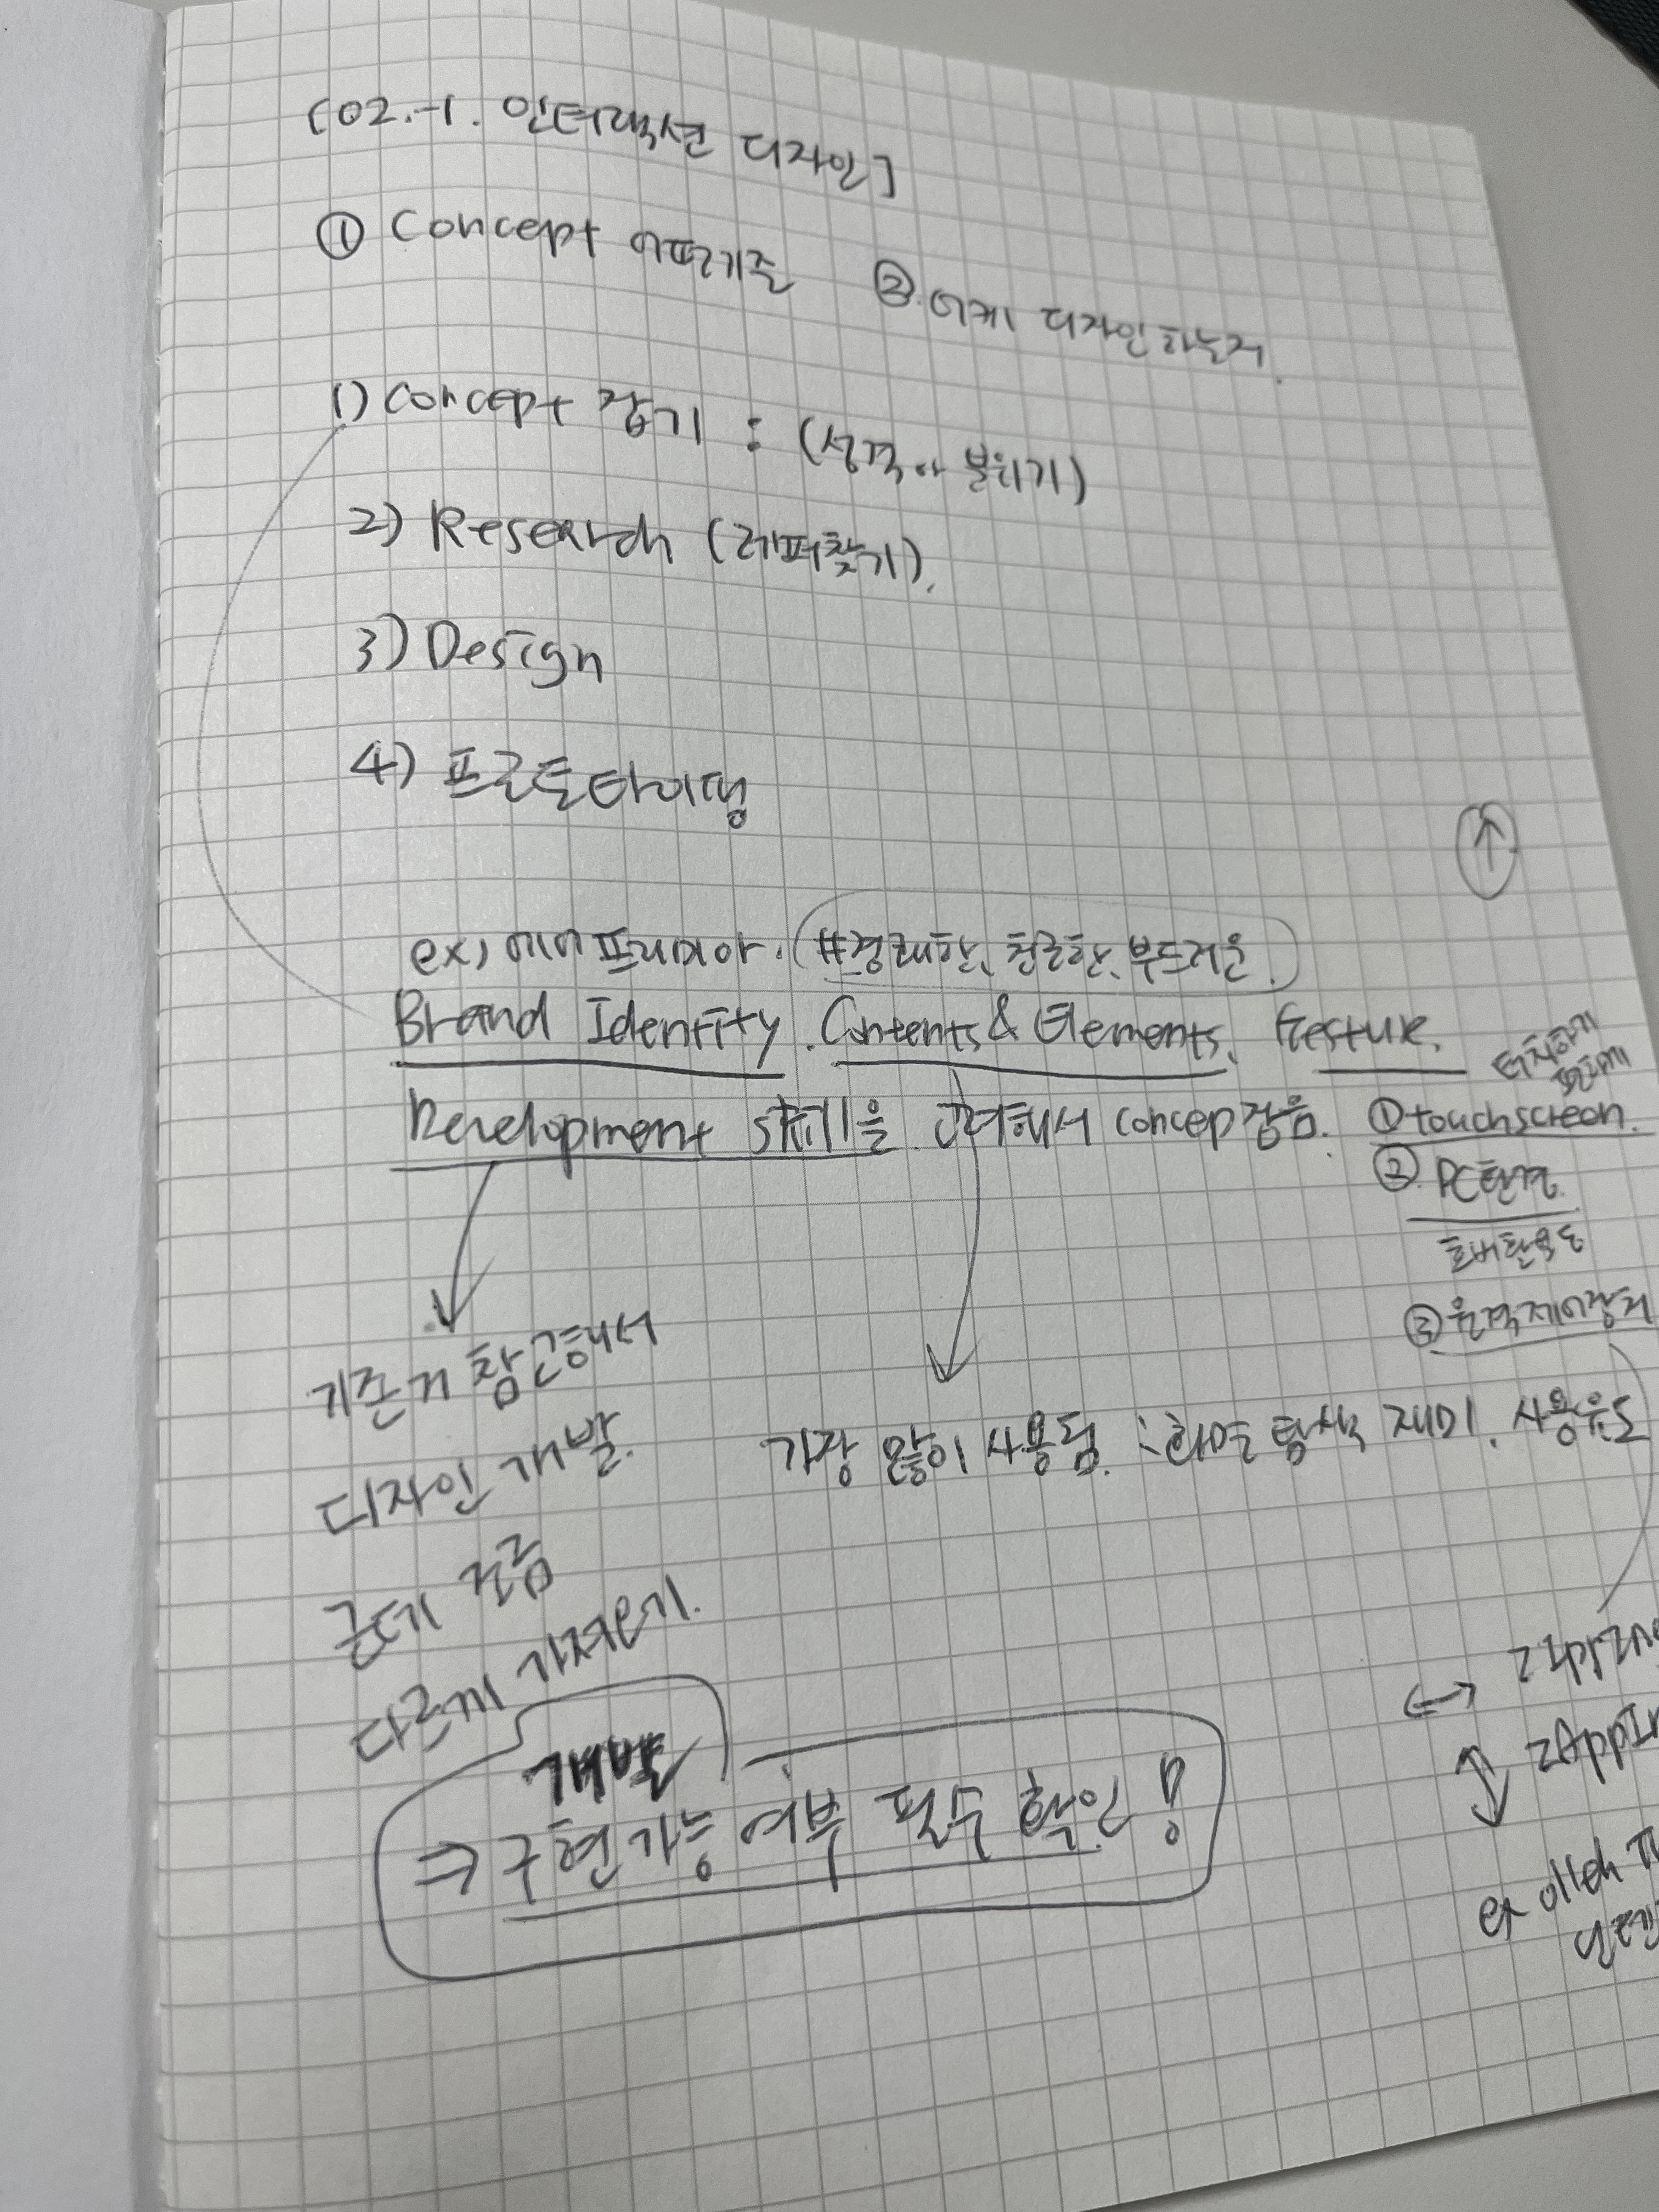 [02.-1. 인터랙션 디자인]
① Concept 어떤기준 ②. 어케 디자인하는지.
1) Concept 잡기 : (성격이나 분위기)
2) Research (레퍼찾기).
3) Design
4) 프로토타이핑
↑
ex) 에어프레미아. (#경쾌한, 친근한, 부드러운.)
Brand Identity. Contents & Elements, Gesture.
터치하기 편하게
Development skill을 고려해서 concep잡음. ① touchscreen.
② PC환경
호버활용도
③ 원격제어장치
기존거 참고해서
디자인 개발.
근데 조금
다르게 가져오기.
가장 많이 사용됨. : 화면 탐색 재미. 사용유도
개발
⇒ 구현가능 여부 필수 확인!
↔
↕
ex olleh